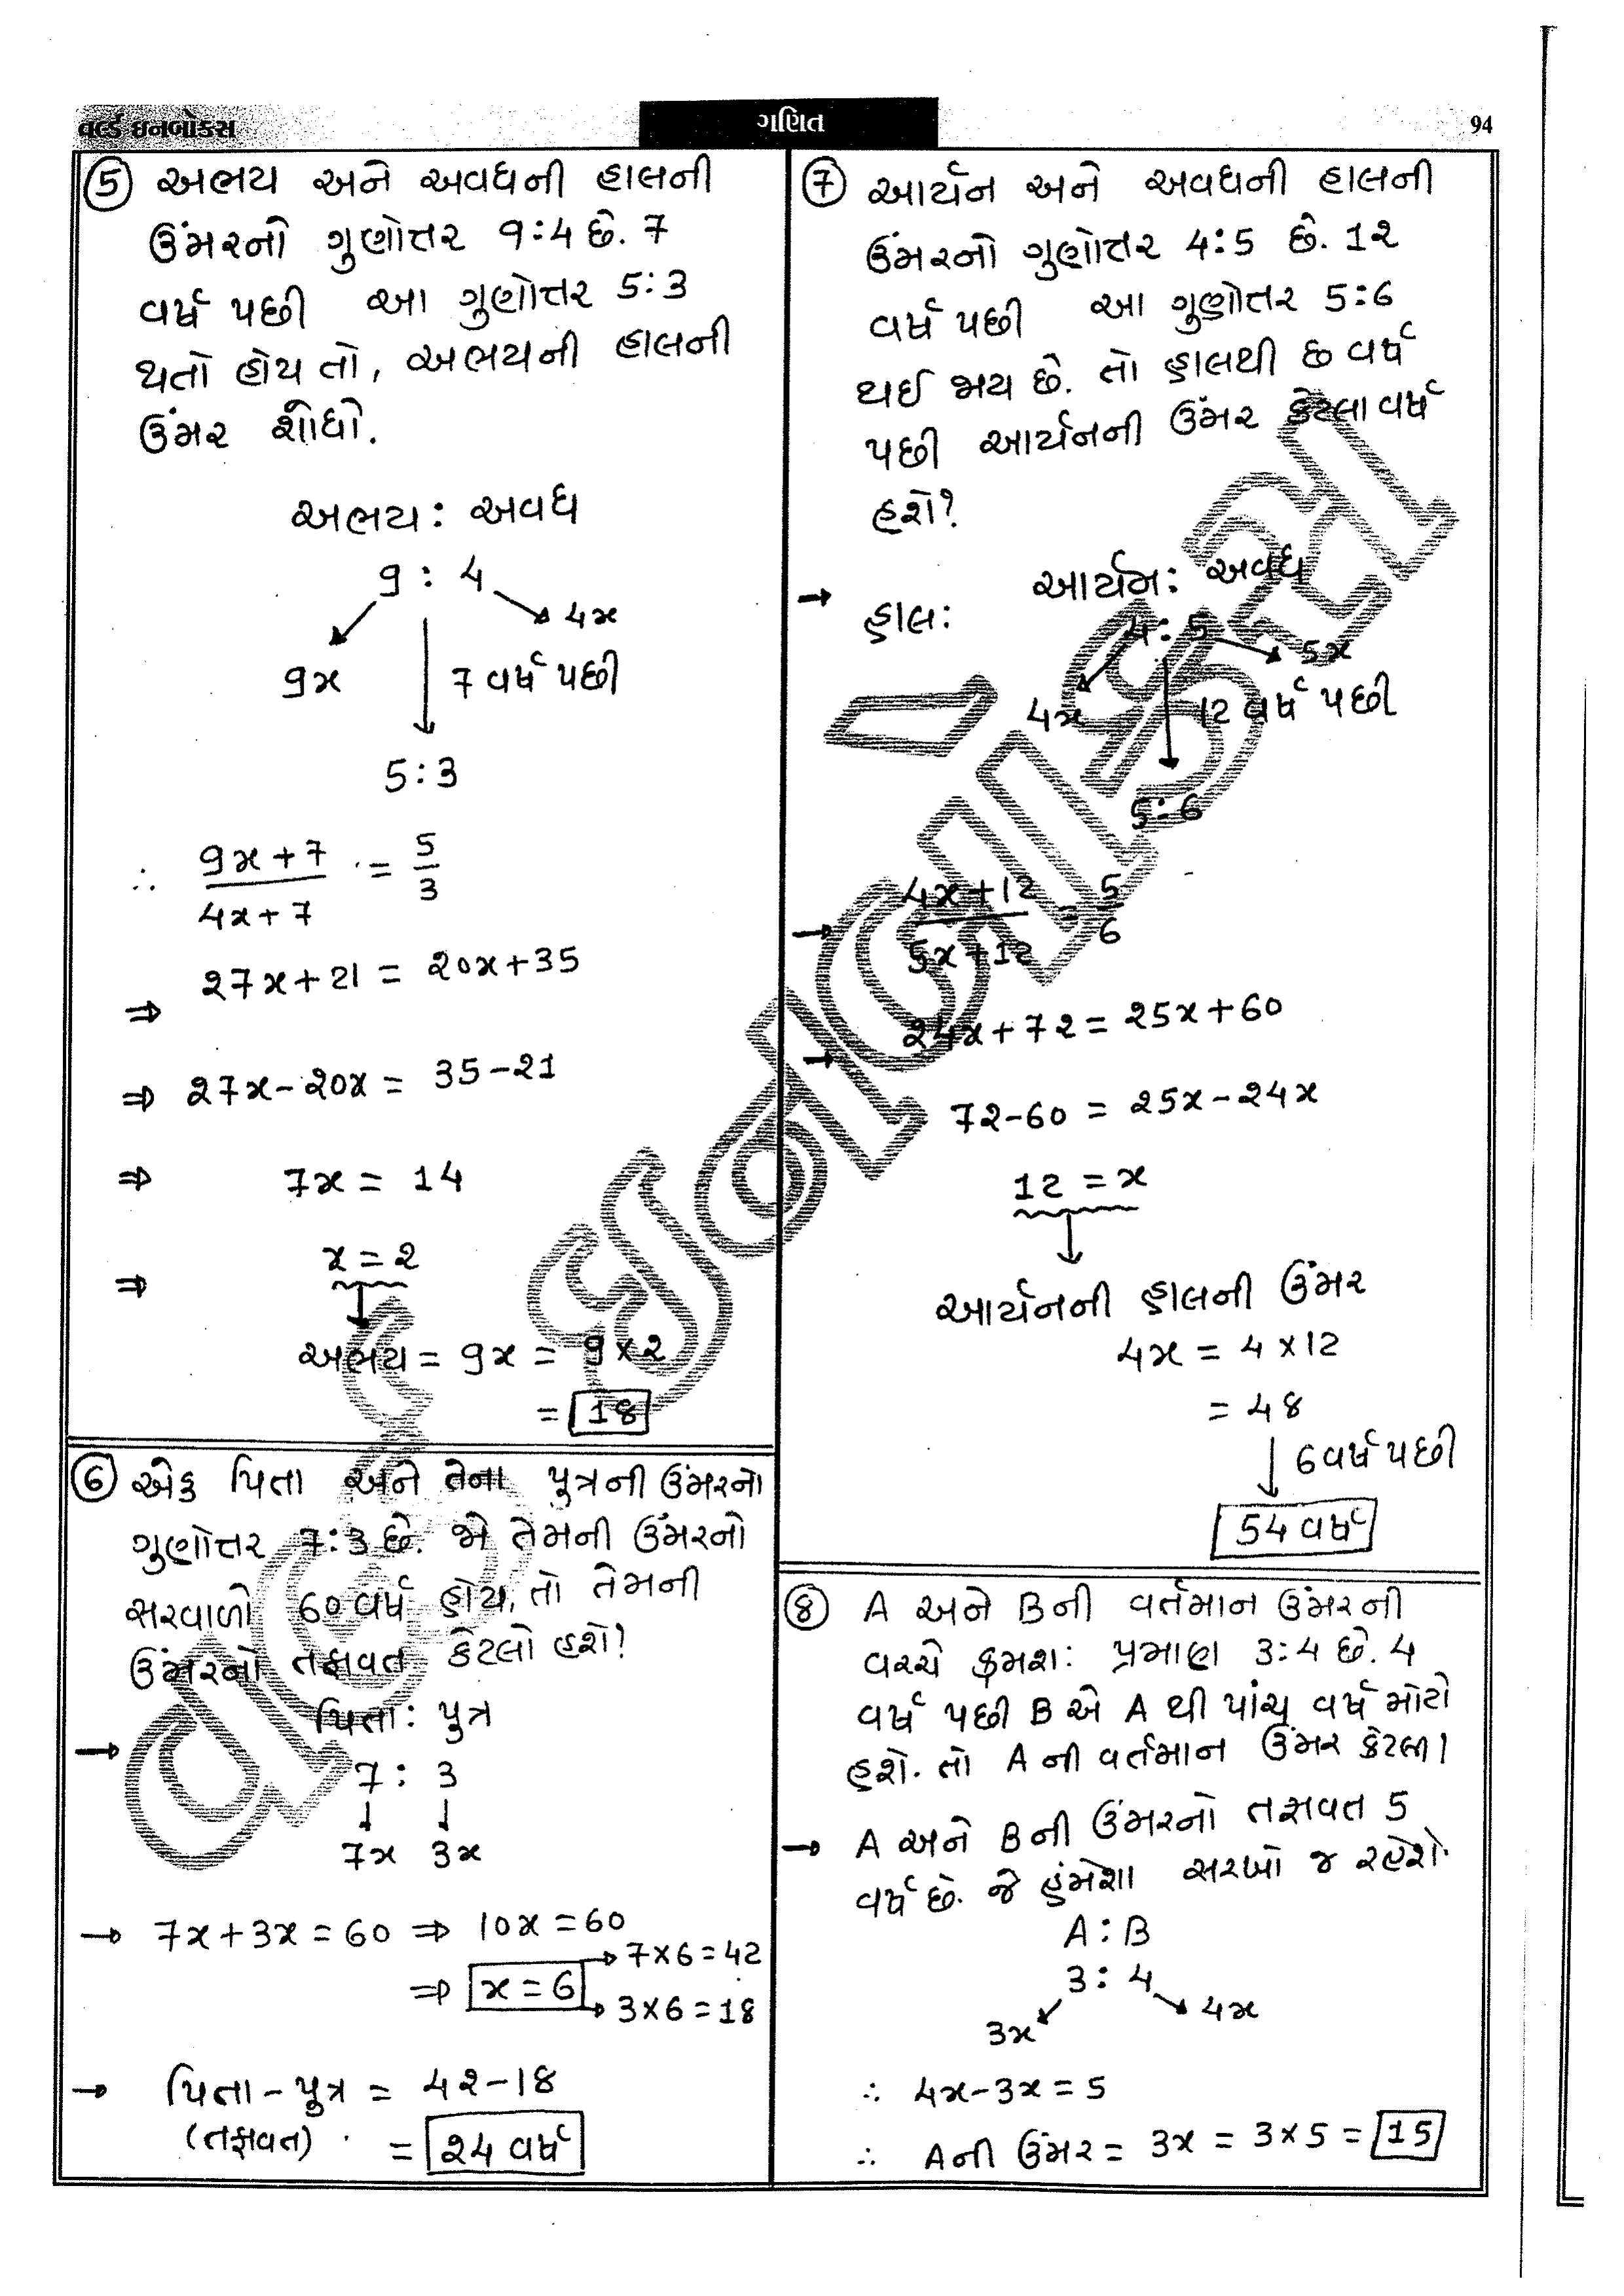 વર્લ્ડ ઇનબોક્સ
ગણિત
94
⑤ અભય અને અવધની હાલની
ઉંમરનો ગુણોત્તર 9:4 છે. 7
વર્ષ પછી આ ગુણોત્તર 5:3
થતો હોય તો, અભયની હાલની
ઉંમર શોધો.
અભય : અવધ
9 : 4
4x
9x
7 વર્ષ પછી
5:3
∴ 9x+7 / 4x+7 = 5/3
⇒ 27x+21 = 20x+35
⇒ 27x-20x = 35-21
⇒ 7x = 14
⇒ x = 2
અભય = 9x = 9×2
= 18
⑥ એક પિતા અને તેના પુત્રની ઉંમરનો
ગુણોત્તર 7:3 છે. જો તેમની ઉંમરનો
સરવાળો 60 વર્ષ હોય, તો તેમની
ઉંમરનો તફાવત કેટલો હશે?
→ પિતા : પુત્ર
7 : 3
↓ ↓
7x 3x
→ 7x+3x=60 ⇒ 10x=60
→ 7×6=42
⇒ x=6
→ 3×6=18
→ પિતા - પુત્ર = 42-18
(તફાવત) = 24 વર્ષ
⑦ આર્યન અને અવધની હાલની
ઉંમરનો ગુણોત્તર 4:5 છે. 12
વર્ષ પછી આ ગુણોત્તર 5:6
થઈ જાય છે. તો હાલથી છ વર્ષ
પછી આર્યનની ઉંમર કેટલા વર્ષ
હશે?
→ હાલ: આર્યન : અવધ
4:5
5x
4x
12 વર્ષ પછી
5:6
→ 4x+12 / 5x+12 = 5/6
→ 24x+72 = 25x+60
72-60 = 25x-24x
12 = x
આર્યનની હાલની ઉંમર
4x = 4×12
= 48
↓ 6 વર્ષ પછી
54 વર્ષ
⑧ A અને B ની વર્તમાન ઉંમરની
વચ્ચે ક્રમશ: પ્રમાણ 3:4 છે. 4
વર્ષ પછી B એ A થી પાંચ વર્ષ મોટો
હશે. તો A ની વર્તમાન ઉંમર કેટલી?
→ A અને B ની ઉંમરનો તફાવત 5
વર્ષ છે. જે હંમેશા સરખો જ રહેશે.
A : B
3 : 4
4x
3x
∴ 4x-3x = 5
∴ A ની ઉંમર = 3x = 3×5 = 15
વર્લ્ડ ઇનબોક્સ